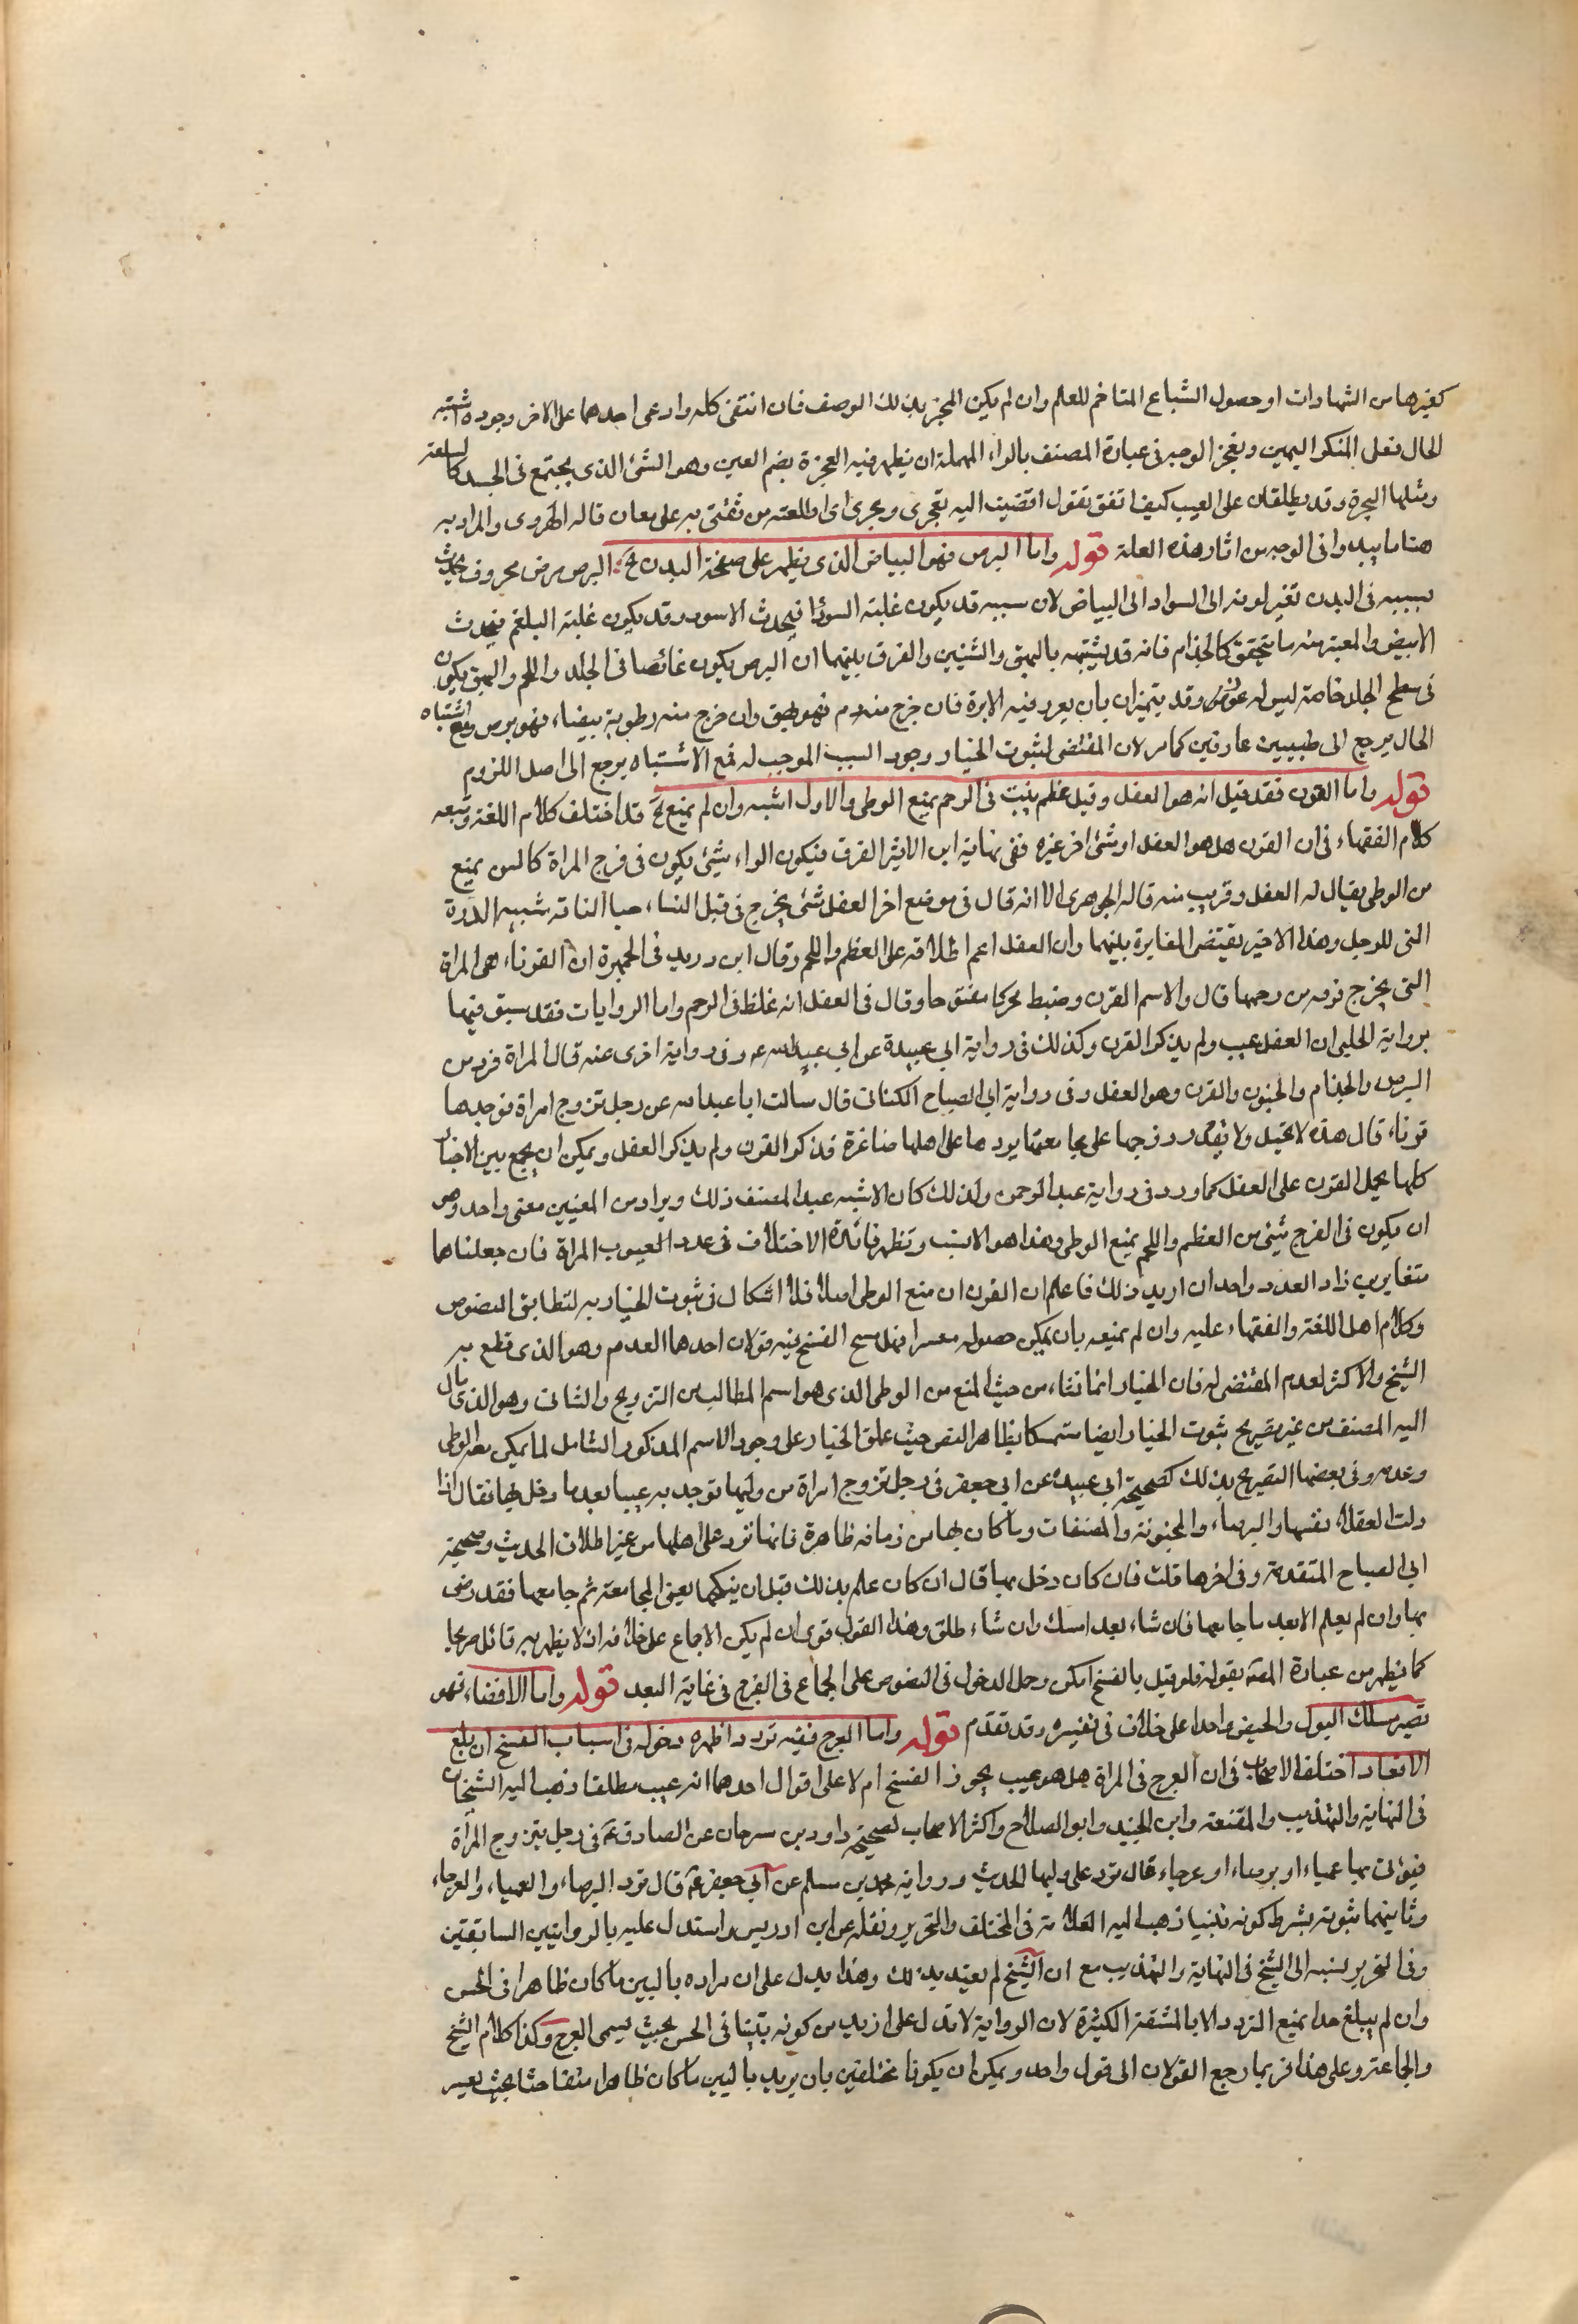 كغيرها من الشهادات او حصول الشياع المتاخم للعلم وان لم يكن المخبر بذلك الوصف فان انتفى كله وادعى احدهما على الاخر وجوده واشتبه
الحال فعلى المنكر اليمين وبعجر الوجه في عبارة المصنف بالراء المهملة ان يظهر فيه العجرة بضم العين وهو الشئ الذي يجتمع في الجسد كالسلعة
ومثلها البجرة وقد يطلقان على العيب كيف اتفق تقول افضيت اليه بعجرى وبجرى اى اطلعته من ثقتى به على معان قاله الهروى والمراد به
هنا ما يبدو في الوجه من اثار هذه العلة قوله واما البرص فهو البياض الذى يظهر على صفحة البدن الخ البرص مرض معروف يحدث
بسببه في البدن تغير لونه الى السواد الى البياض لان سببه قد يكون غلبة السودا فيحدث الاسود وقد يكون غلبة البلغم فيحدث
الابيض والمعتبر منه ما يتحقق كالجذام فانه قد يشتبه بالبهق والشينين والفرق بينهما ان البرص يكون غائصا في الجلد واللحم والبهق يكون
في سطح الجلد خاصة ليس له غوص وقد يتميزان بان يغرز فيه الابرة فان خرج منه دم فهو بهق وان خرج منه رطوبة بيضاء فهو برص ومع اشتباه
الحال يرجع الى طبيبين عارفين كما مر لان المقتضى لثبوت الخيار وجود السبب الموجب له فمع الاشتباه يرجع الى اصل اللزوم
قوله واما القرن فقد قيل انه هو العفل وقيل عظم ينبت في الرحم يمنع الوطى والاول اشبه وان لم يمنع الخ قد اختلف كلام اللغة وتبعه
كلام الفقهاء في ان القرن هل هو العفل او شئ اخر غيره ففى نهاية ابن الاثير القرن بسكون الراء شئ يكون في فرج المراة كالسن يمنع
من الوطى يقال له العفل وقريب منه قاله الجوهرى الا انه قال في موضع اخر العفل شئ يخرج في قبل النساء وحيا الناقة شبيه الادرة
التى للرجل وهذا الاخير يقتضى المغايرة بينهما وان العفل اعم اطلاقه على العظم واللحم وقال ابن دريد في الجمهرة ان القرناء هى المراة
التى يخرج قرنه من رحمها قال والاسم القرن وضبطه محركا مفتوحا وقال في العفل انه غلظ في الرحم واما الروايات فقد سبق فيها
برواية الحلبى ان العفل عيب ولم يذكر القرن وكذلك في رواية ابى عبيدة عن ابي عبد الله ع وفى رواية اخرى عنه قال المراة ترد من
البرص والجذام والجنون والقرن وهو العفل وفى رواية ابى الصباح الكنانى قال سالت ابا عبد الله عن رجل تزوج امراة فوجد بها
قرناء قال هذه لا تحبل ولا يقدر زوجها على مجامعتها يردها على اهلها صاغرة فذكر القرن ولم يذكر العفل ويمكن ان يجمع بين الاخبار
كلها بحمل القرن على العفل كما ورد في رواية عبد الرحمن ولذلك كان الاشبه عند المصنف ذلك ويراد من المعنيين معنى واحد وهو
ان يكون في الفرج شئ من العظم واللحم يمنع الوطى وهذا هو الانسب وتظهر فائدة الاختلاف في عدد العيوب المراة فان جعلناها
متغايرين زاد العدد واحدا ان اريد ذلك فاعلم ان القرن ان منع الوطى اصلا فلا اشكال في ثبوت الخيار به لتطابق النصوص
وكلام اهل اللغة والفقهاء عليه وان لم يمنعه بان يمكن حصوله معسرا فهل يبيح الفسخ فيه قولان احدهما العدم وهو الذى قطع به
الشيخ والاكثر لعدم المقتضى له فان الخيار انما نشاء من حيث المنع من الوطى الذى هو اسم المطالب من التزويج والثانى وهو الذى مال
اليه المصنف من غير تصريح بثبوت الخيار ايضا متمسكا بظاهر النص حيث علق الخيار على وجود الاسم المذكور الشامل لما يمكن معه الوطى
وعدمه وفى بعضها التصريح بذلك كصحيحة ابى عبيدة عن ابى جعفر في رجل تزوج امراة من وليها فوجد به عيبا بعد ما دخل بها فقال اذا
دلست العفلاء نفسها والبرصاء والمجنونة والمفضات وما كان بها من زمانه ظاهرة فانها ترد على اهلها من غير اطلاق الحديث وصحيحة
ابى الصباح المتقدمة وفى اخرها قلت فان كان دخل بها قال ان كان علم بذلك قبل ان ينكحها يعنى المجامعة ثم جامعها فقد رضى
بها وان لم يعلم الا بعد ما جامعها فان شاء بعد امسك وان شاء طلق وهذا القول قوى ان لم يكن الاجماع على خلافه اذ لا يظهر به قائل صريحا
كما يظهر من عبارة المصنف بقوله فلو قيل بالفسخ امكن وحمل الدخول في النصوص على الجماع في الفرج في غاية البعد قوله واما الافضاء فهو
تصير مسلك البول والحيض واحدا على خلاف في تفسيره وقد تقدم قوله واما العرج ففيه تردد اظهره دخوله في اسباب الفسخ ان بلغ
الاقعاد اختلف الاصحاب في ان العرج في المراة هل هو عيب يجوز الفسخ ام لا على اقوال احدهما انه عيب مطلقا ذهب اليه الشيخان
في النهاية والتهذيب والمقنعة وابن الجنيد وابو الصلاح واكثر الاصحاب لصحيحة داود بن سرحان عن الصادق ع في رجل يتزوج المرأة
فيؤتى بها عمياء او برصاء او عرجاء قال ترد على وليها الحديث ورواية محمد بن مسلم عن ابى جعفر ع قال ترد البرصاء والعمياء والعرجاء
وثانيهما ثبوته بشرط كونه بينا ذهب اليه العلامة في المختلف والتحرير ونقله عن ابن ادريس واستدل عليه بالروايتين السابقتين
وفى التحرير نسبه الى الشيخ في النهاية والتهذيب مع ان الشيخ لم يقيد بذلك وهذا يدل على ان مراده بالبين ما كان ظاهرا في الحس
وان لم يبلغ حدا يمنع التردد الا بالمشقة الكثيرة لان الرواية لا تدل على ازيد من كونه بينا في الحس بحيث يسمى العرج وكذا كلام الشيخ
والجماعة وعلى هذا فربما رجع القولان الى قول واحد ويمكن ان يكونا مختلفين بان يريد بالبين ما كان ظاهرا متفاحشا بحيث يعسر